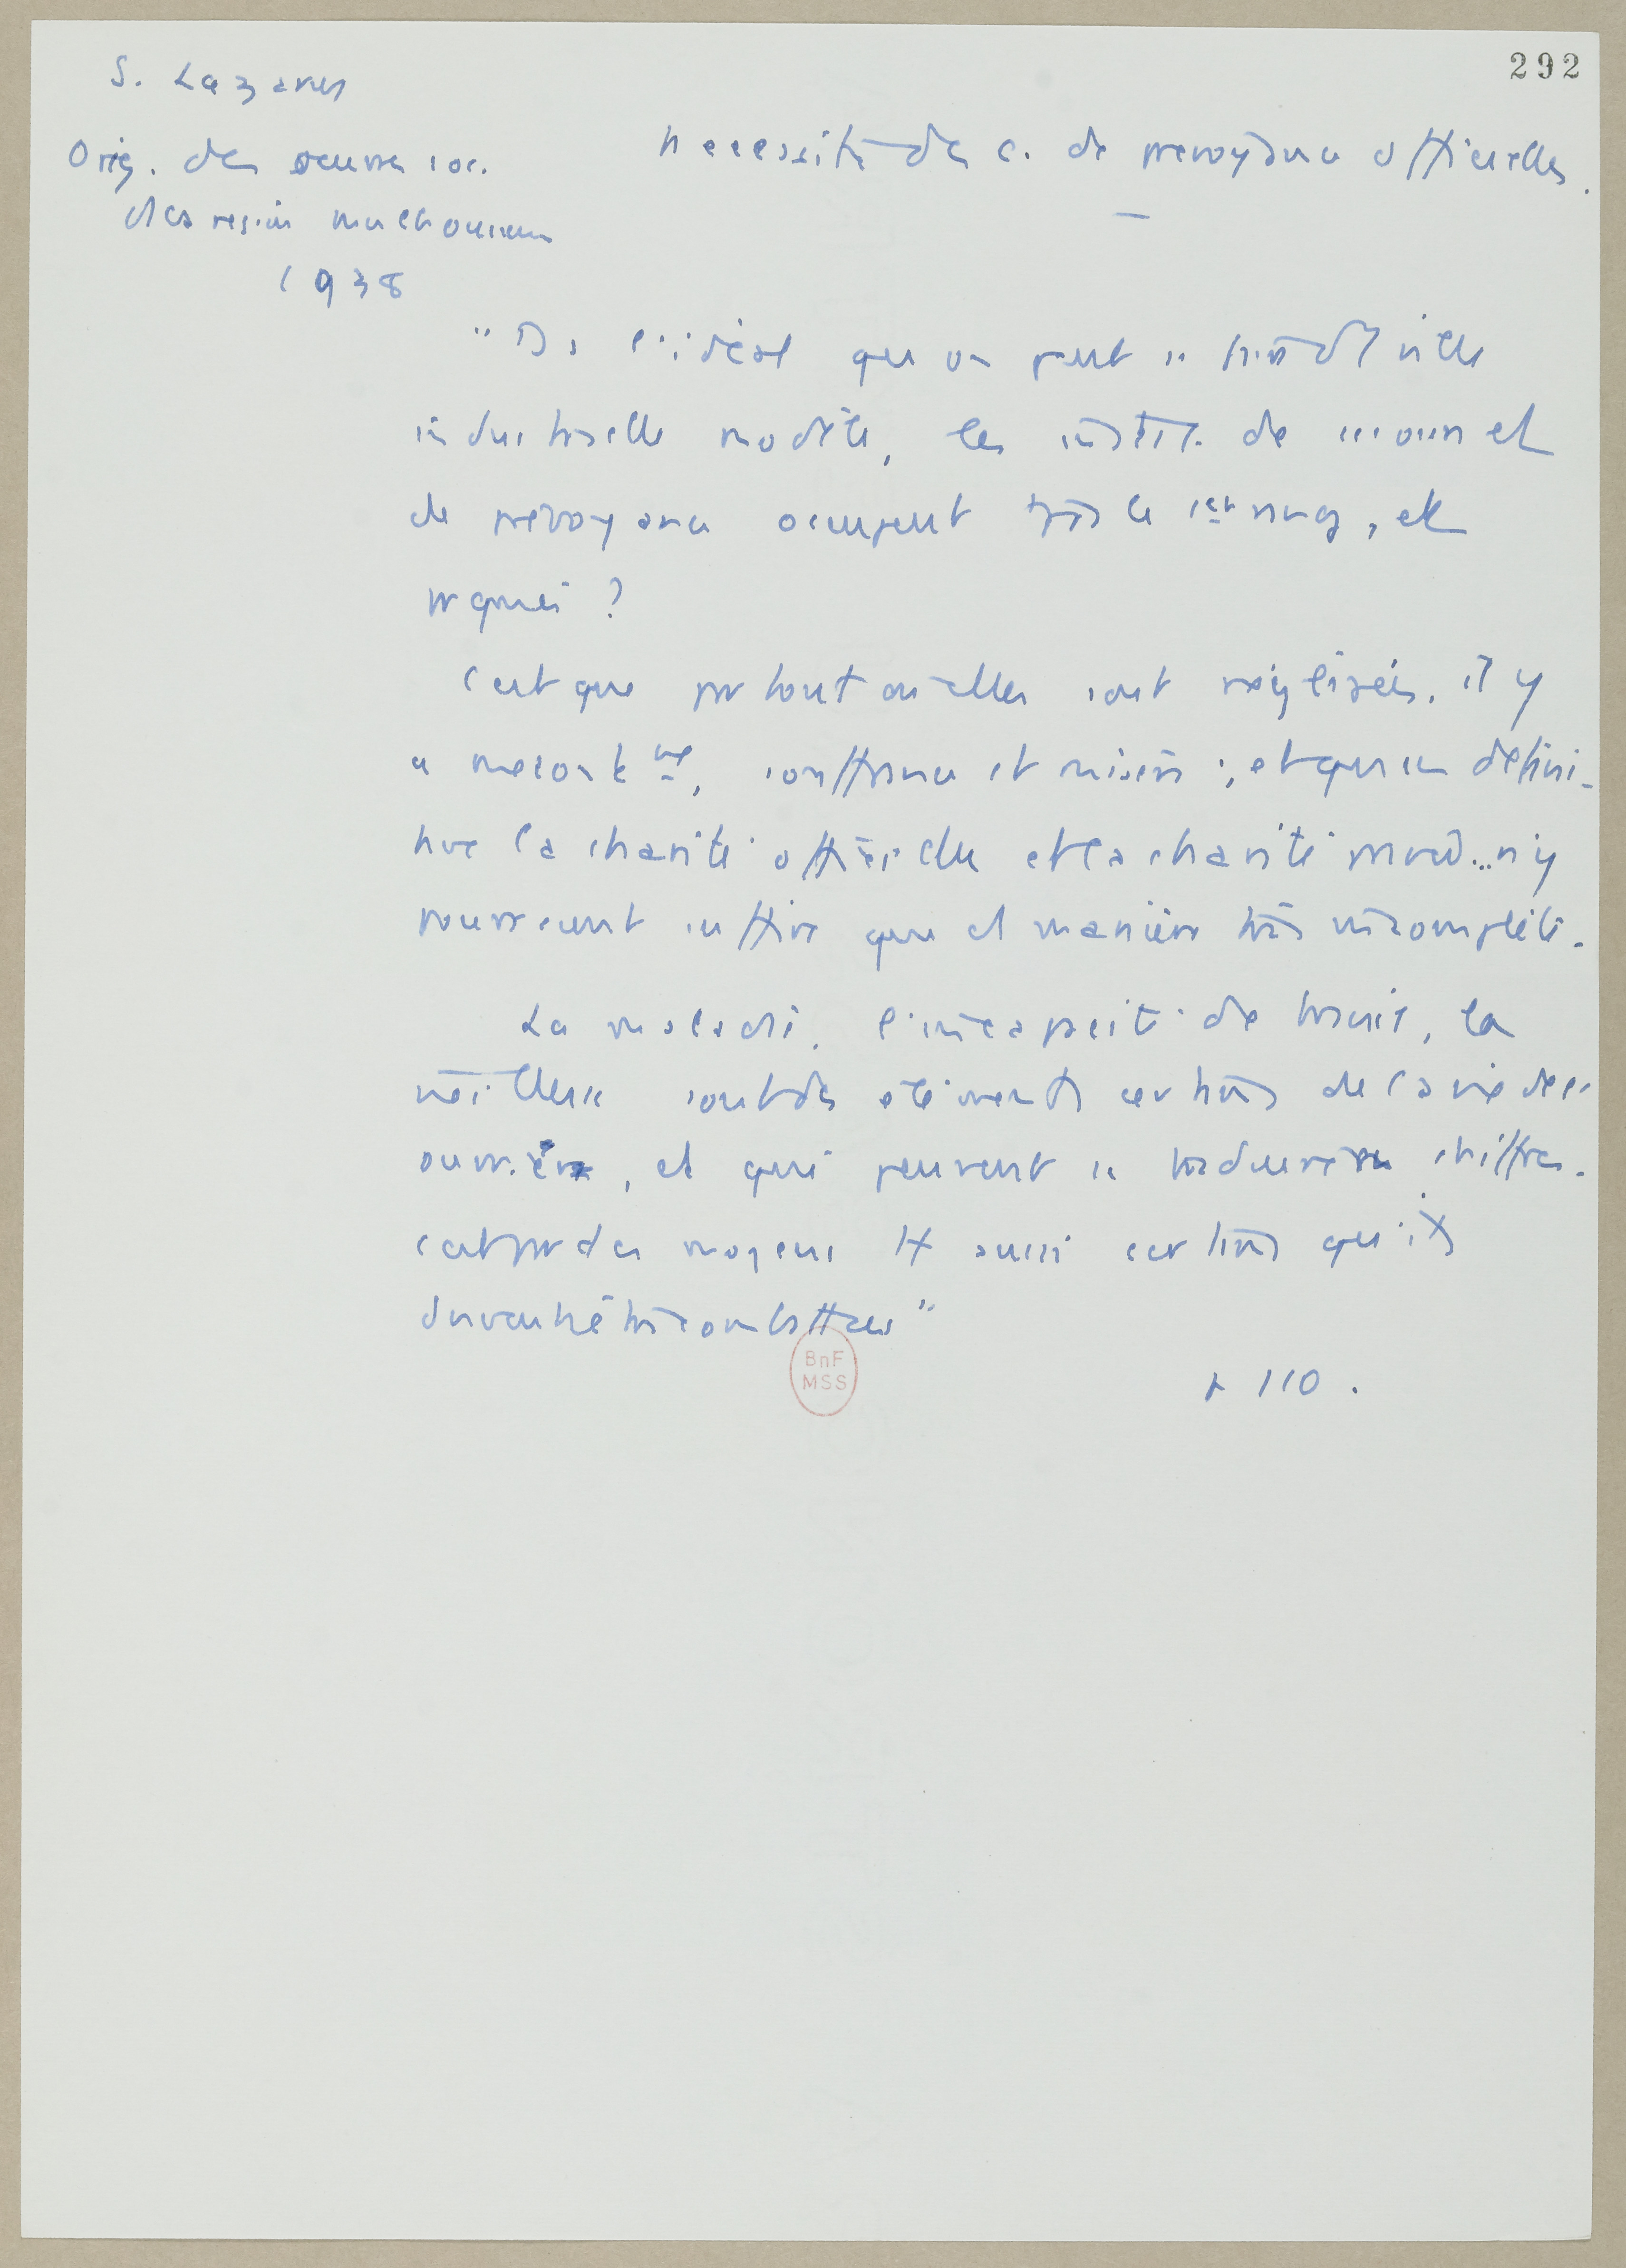 292
S. Lazarus
Orig. des oeuvres soc.
des region mulhousienne
1938
Necessité des c. de prevoyance officielles.
"Ds l'idéal que on peut se faire d'1 ville
industrielle modèle, les instit. de secours et
de prévoyance occupent très le 1er rang, et
pr quoi ?
C'est que partout où elles sont négligées, il y
a mecont me, souffrance et misère ; et qu'en défini-
tive la charité officielle et la charité privée n'y
pourraient suffire que d manière très incomplète.
La maladie, l'incapacité de travail, la
vieillesse sont des éléments certains de la vie de l'
ouvrier, et qui peuvent se traduire en chiffres.
C'est par des moyens tt aussi certains qu'ils
devront être combattues"
p 110.
BnF
MSS